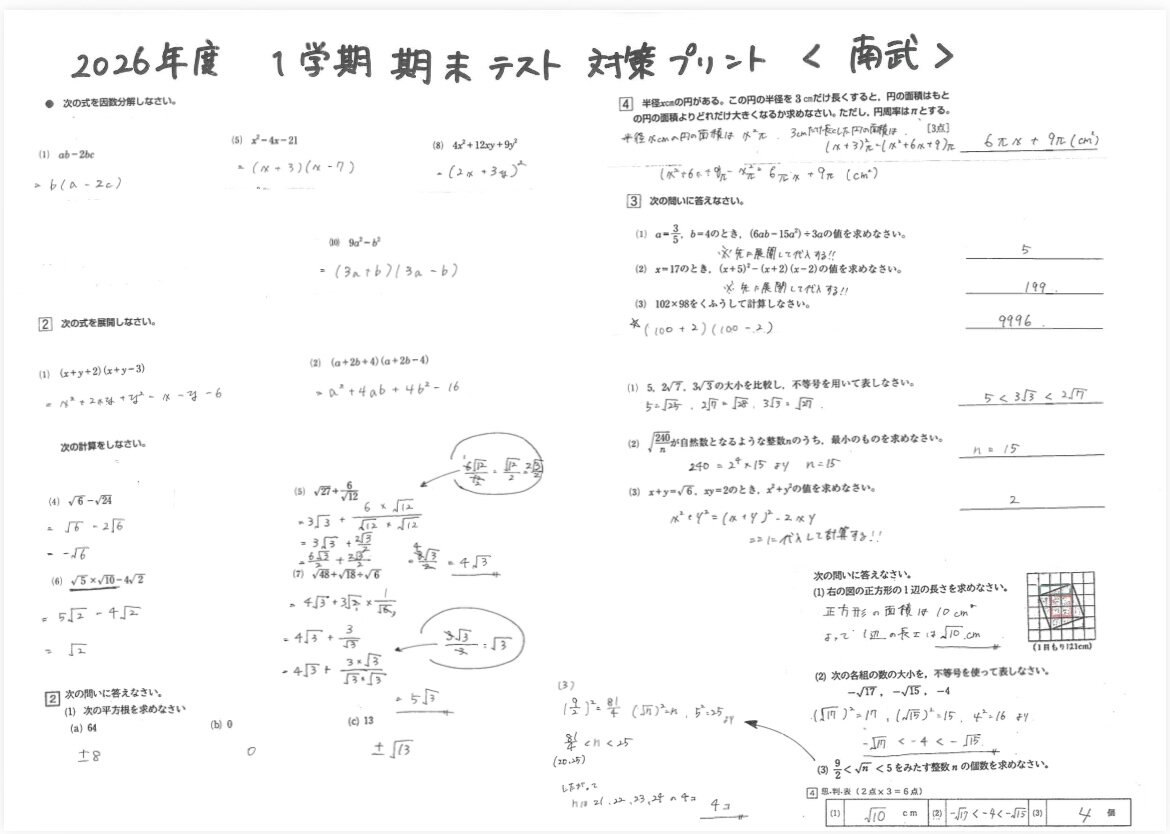 2026年度 1学期 期末 テスト 対策プリント < 南武 >
● 次の式を因数分解しなさい。
(1) ab−2bc
= b(a − 2c)
(5) x²−4x−21
= (x + 3)(x − 7)
(8) 4x²+12xy+9y²
= (2x + 3y)²
(10) 9a²−b²
= (3a+b)(3a−b)
2 次の式を展開しなさい。
(1) (x+y+2)(x+y−3)
= x²+2xy+y²−x−y−6
(2) (a+2b+4)(a+2b−4)
= a²+4ab+4b²−16
次の計算をしなさい。
(4) √6−√24
= √6 − 2√6
= −√6
(5) √27+6/√12
= 3√3 + 6×√12/√12×√12
= 3√3 + 2√3/2
= 6√3/2 + 2√3/2
= 8√3/2 = 4√3
6√12/12 = √12/2 = 2√3/2
(6) √5×√10−4√2
= 5√2 − 4√2
= √2
(7) √48+√18÷√6
= 4√3+3√2×1/√6
= 4√3+3/√3
= 4√3+3×√3/√3×√3
= 5√3
3√3/3 = √3
2 次の問いに答えなさい。
(1) 次の平方根を求めなさい
(a) 64
±8
(b) 0
0
(c) 13
±√13
4 半径xcmの円がある。この円の半径を3cmだけ長くすると，円の面積はもと
の円の面積よりどれだけ大きくなるか求めなさい。ただし，円周率はπとする。
[3点]
半径xcmの円の面積は x²π．3cmだけ長くした円の面積は，
(x+3)²π=(x²+6x+9)π
6πx + 9π(cm²)
3 次の問いに答えなさい。
(1) a=3/5，b=4のとき，(6ab−15a²)÷3aの値を求めなさい。
※先に展開して代入する!!
5
(2) x=17のとき，(x+5)²−(x+2)(x−2)の値を求めなさい。
※先に展開して代入する!!
199
(3) 102×98をくふうして計算しなさい。
☆(100+2)(100−2)
9996
(1) 5，2√7，3√3の大小を比較し，不等号を用いて表しなさい。
5=√25．2√7=√28．3√3=√27．
5<3√3<2√7
(2) √240/nが自然数となるような整数nのうち，最小のものを求めなさい。
240 = 2⁴×15 より n=15
n = 15
(3) x+y=√6，xy=2のとき，x²+y²の値を求めなさい。
x²+y²=(x+y)²−2xy
ここに代入して計算する!!
2
次の問いに答えなさい。
(1) 右の図の正方形の1辺の長さを求めなさい。
正方形の面積は10cm²
よって 1辺の長さは√10cm
(1目もりは1cm)
(2) 次の各組の数の大小を，不等号を使って表しなさい。
−√17，−√15，−4
(√17)²=17，(√15)²=15，4²=16 より
−√17 < −4 < −√15
(3) 9/2<√n<5をみたす整数nの個数を求めなさい。
(3)
(9/2)²=81/4 (√n)²=n．5²=25より
81/4<n<25
(20.25)
したがって
nは21，22，23，24の4コ
4コ
4 思・判・表（2点×3＝6点）
(1) √10 cm (2) −√17<−4<−√15 (3) 4 個